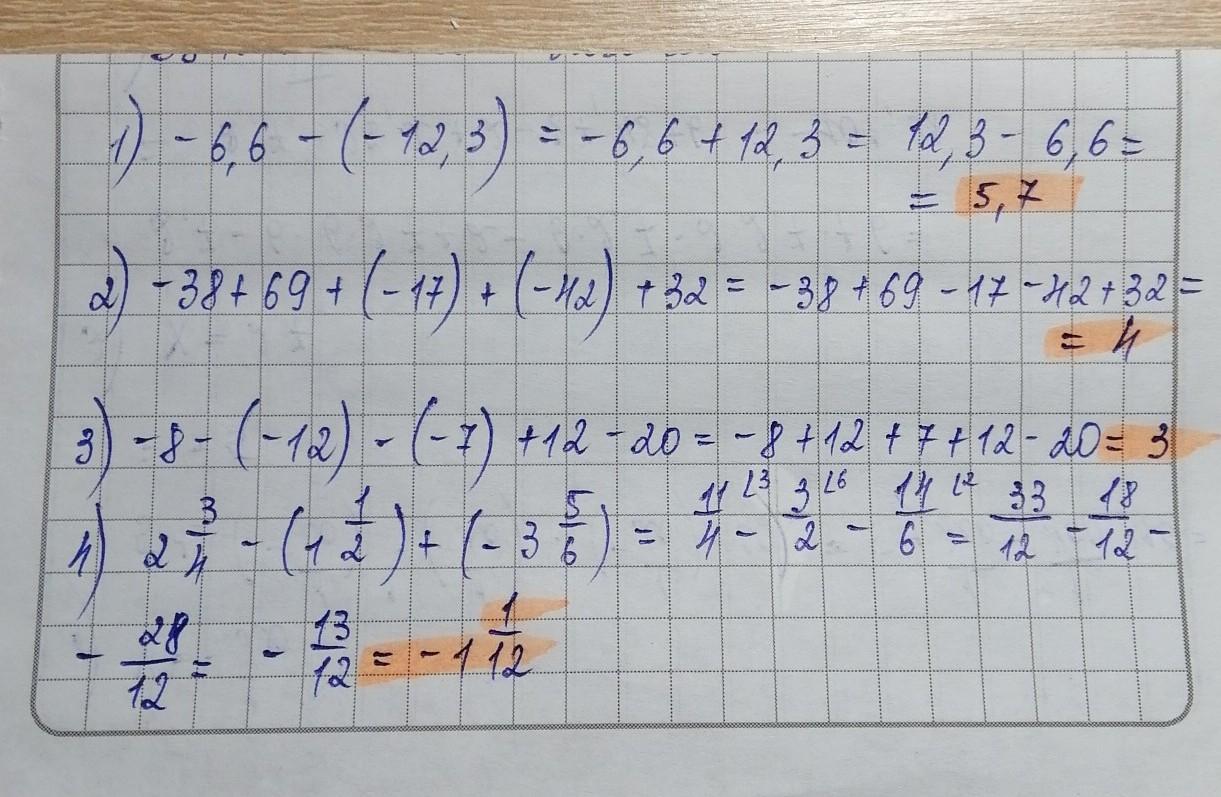 1) - 6,6 - (- 12,3) = - 6,6 + 12,3 = 12,3 - 6,6 =
= 5,7
2) - 38 + 69 + (- 17) + (- 42) + 32 = - 38 + 69 - 17 - 42 + 32 =
= 4
3) - 8 - (- 12) - (- 7) + 12 - 20 = - 8 + 12 + 7 + 12 - 20 = 3
4) 2 3/4 - (1 1/2) + (- 3 5/6) = 11/4 ⌊3 - 3/2 ⌊6 - 14/6 ⌊2 = 33/12 - 18/12 -
- 28/12 = - 13/12 = - 1 1/12